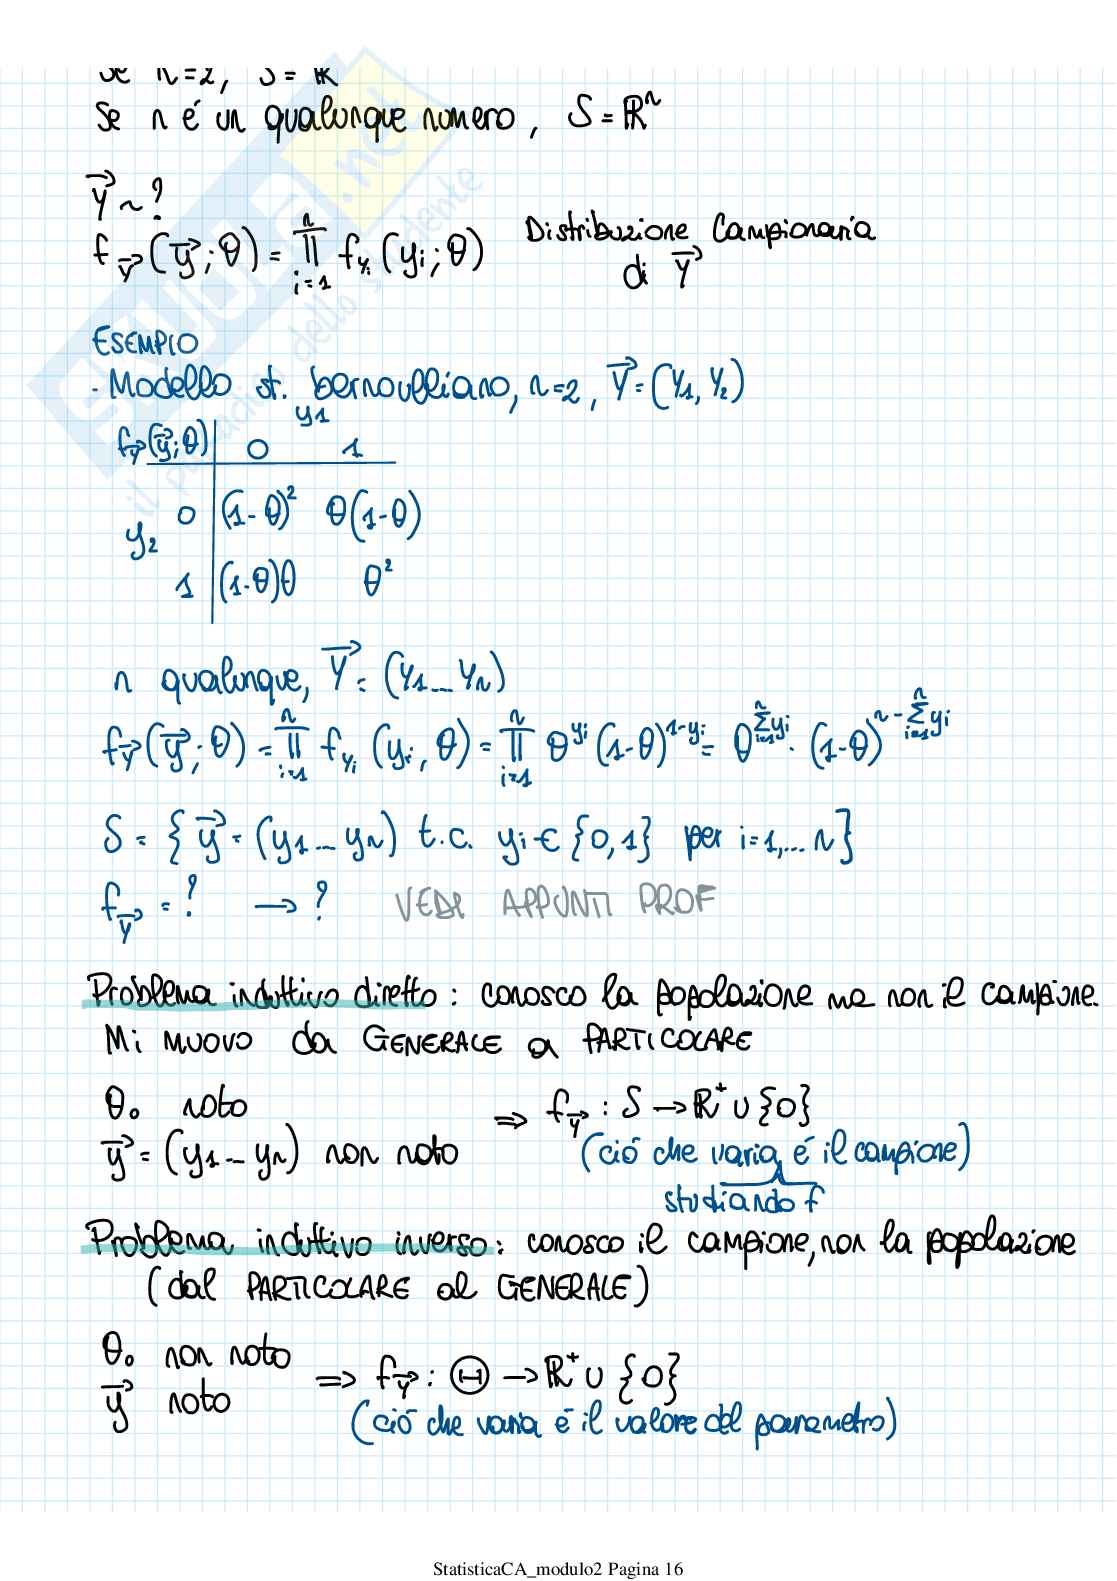 se n=2, S = ℝ
Se n é un qualunque numero, S = ℝⁿ
Y⃗ ~ ?
f_Y⃗ (y⃗; θ) = ∏_{i=1}^{n} f_{Yi} (yi; θ) Distribuzione Campionaria
di Y⃗
ESEMPIO
- Modello st. bernoulliano, n=2, Y⃗ = (Y1, Y2)
y1
f_Y⃗(y⃗; θ) 0 1
0 (1-θ)² θ(1-θ)
y2
1 (1-θ)θ θ²
n qualunque, Y⃗ = (Y1 ... Yn)
f_Y⃗ (y⃗; θ) = ∏_{i=1}^{n} f_{Yi} (yi, θ) = ∏_{i=1}^{n} θ^{yi} (1-θ)^{1-yi} = θ^{∑_{i=1}^{n} yi} · (1-θ)^{n - ∑_{i=1}^{n} yi}
S = { y⃗ = (y1 ... yn) t.c. yi ∈ {0,1} per i=1,... n }
f_Y⃗ = ? → ? VEDI APPUNTI PROF
Problema induttivo diretto : conosco la popolazione ma non il campione.
Mi MUOVO da GENERALE a PARTICOLARE
θ₀ noto ⇒ f_Y⃗ : S → ℝ⁺ ∪ {0}
y⃗ = (y1 ... yn) non noto (ció che varia é il campione)
studiando f
Problema induttivo inverso : conosco il campione, non la popolazione
(dal PARTICOLARE al GENERALE)
θ₀ non noto ⇒ f_Y⃗ : Θ → ℝ⁺ ∪ {0}
y⃗ noto (ció che varia é il valore del parametro)
StatisticaCA_modulo2 Pagina 16